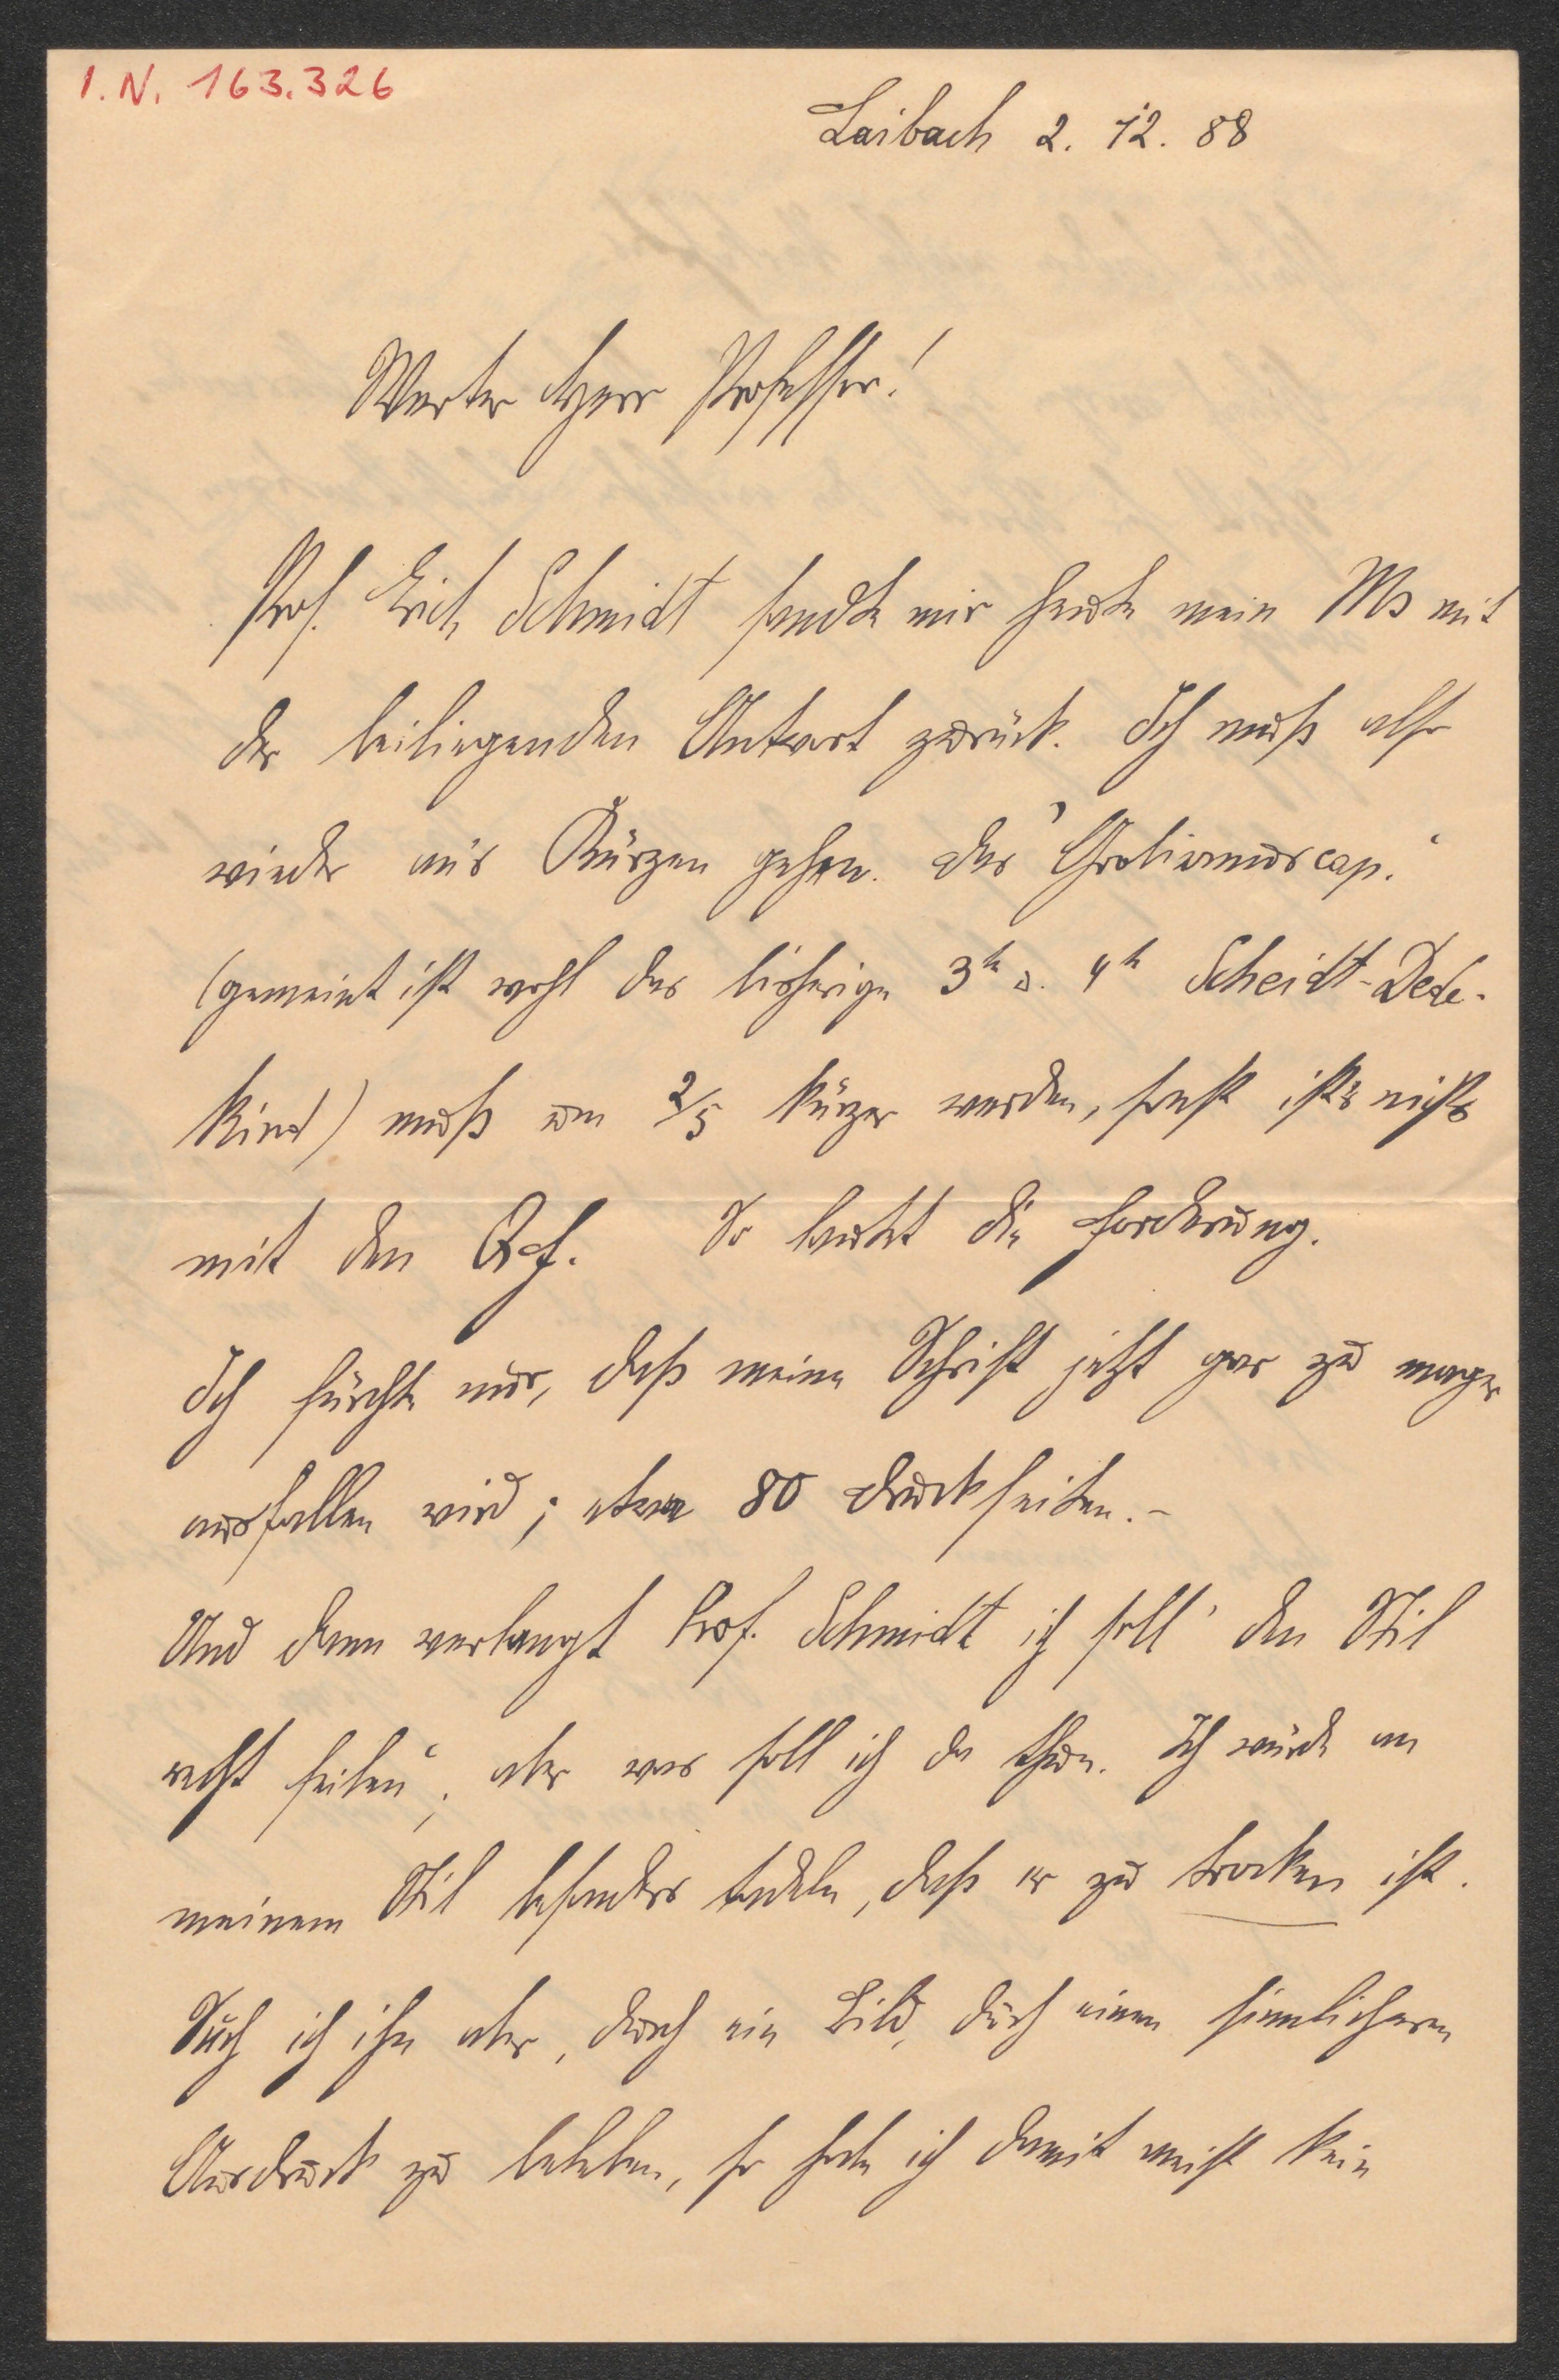 I.N. 163.326
Laibach 2. 12. 88
Werter Herr Professor!
Prof. Erich Schmidt sandte mir heute mein Ms mit
der beiliegenden Antwort zurück. Ich muß also
wieder ans Kürzen gehen. das „Grobianuscap.“
(gemeint ist wohl das bisherige 3te u. 4te Scheidt-Dede-
kind) muß um 2/5 kürzer werden, sonst ist's nichts
mit den QF. So lautet die Forderung.
Ich fürchte nur, daß meine Schrift jetzt gar zu mager
ausfallen wird; etwa 80 Druckseiten. -
Und dann verlangt Prof. Schmidt ich soll „den Stil
recht feilen“; aber was soll ich da thun. Ich würde an
meinem Stil besonders tadeln, daß er zu trocken ist.
Such ich ihn aber, durch ein Bild, durch einen sinnlicheren
Ausdruck zu beleben, so habe ich damit meist kein